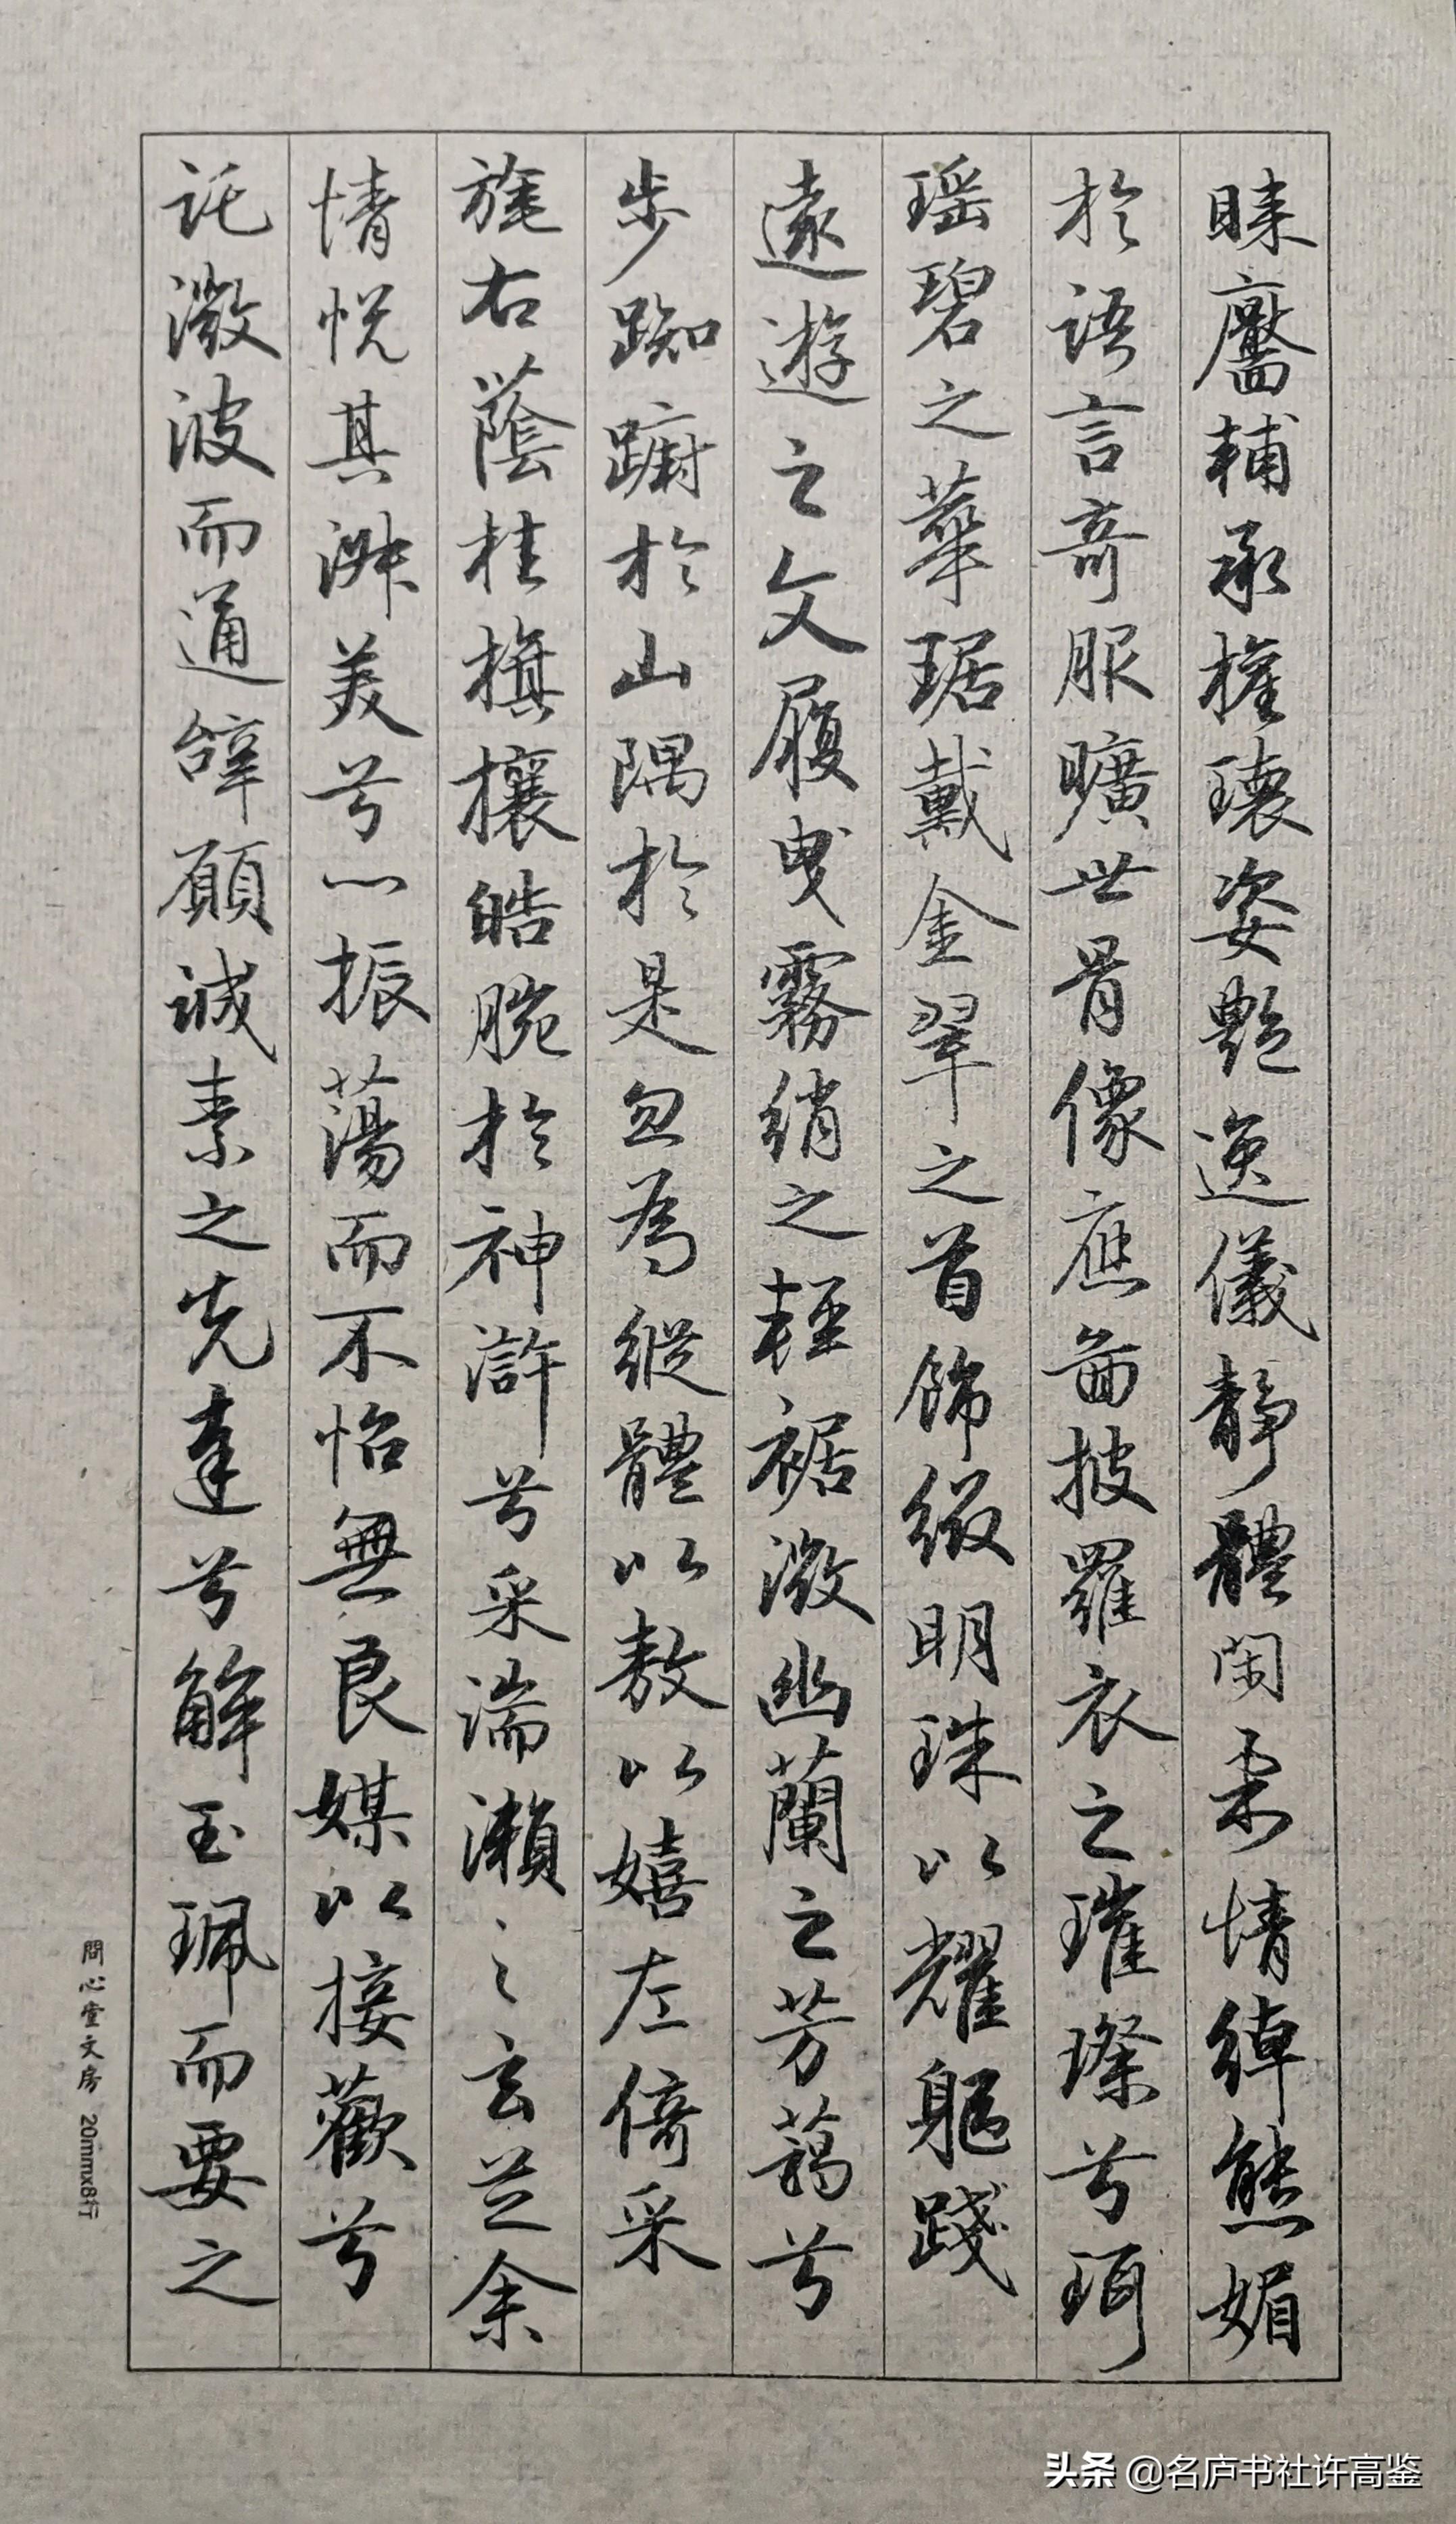 睐靨輔承權瓌姿艷逸儀靜體閑柔情綽態媚
於語言奇服曠世骨像應啚披羅衣之璀璨兮珥
瑶碧之華琚戴金翠之首飾綴明珠以耀軀踐
遠遊之文履曳霧綃之輕裾微幽蘭之芳藹兮
步踟躕於山隅於是忽為縱體以敖以嬉左倚采
旄右蔭桂旗攘皓腕於神滸兮采湍瀨之玄芝余
情悅其淑美兮心振蕩而不怡無良媒以接歡兮
託微波而通辭願誠素之先達兮解玉珮而要之
問心堂文房 20mmx8行
头条 @名庐书社许高鉴